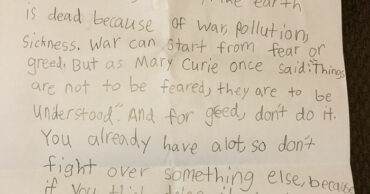 the earth
is dead because of war, pollution,
sickness. War can start from fear or
greed. But as Mary Curie once said: "Things
are not to be feared, they are to be
understood". And for geed, don't do it.
You already have a lot, so don't
fight over something else, because
if you